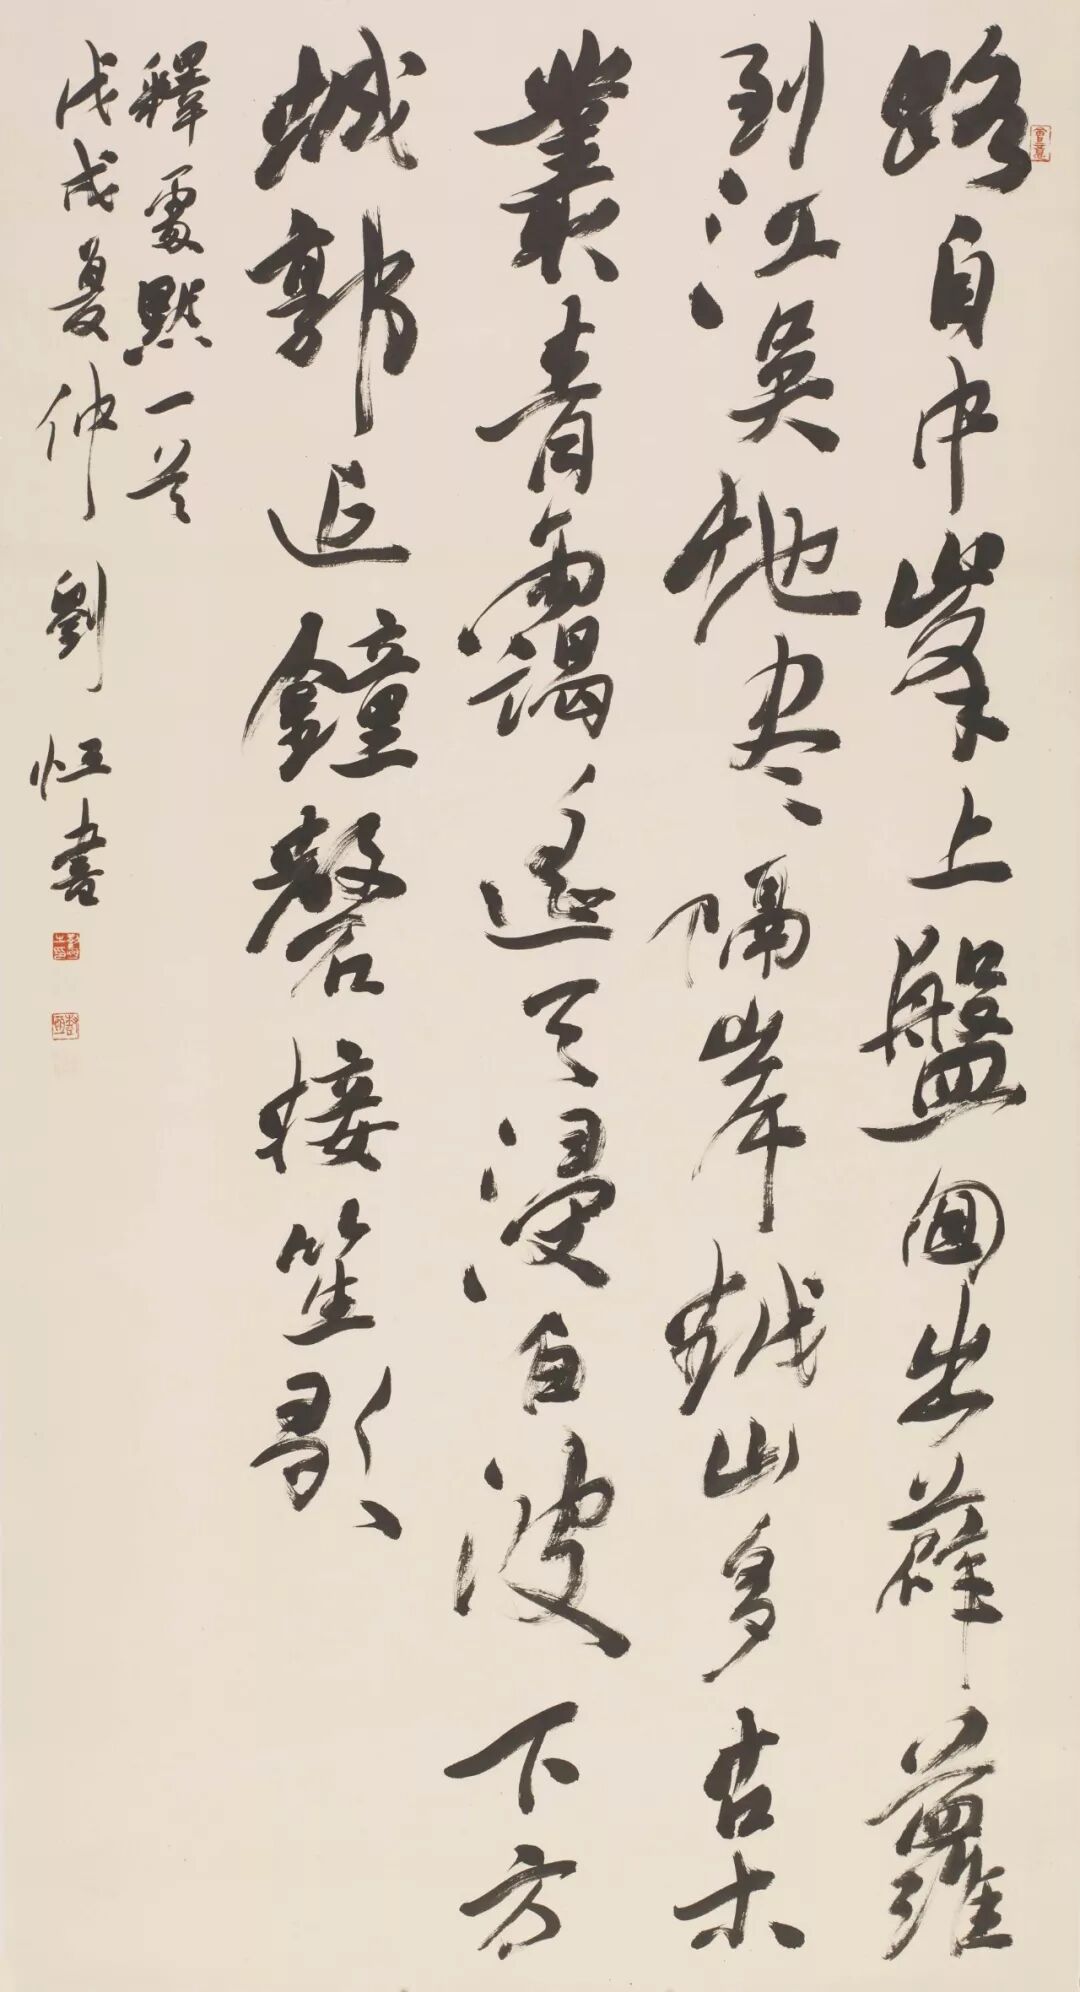 路自中峯上盤囬出薜蘿
到江吳地尽隔岸越山多古木
叢青靄遙天浸白波下方
城郭近鐘磬接笙歌
釋處默一首
戊戌夏仲劉恒書